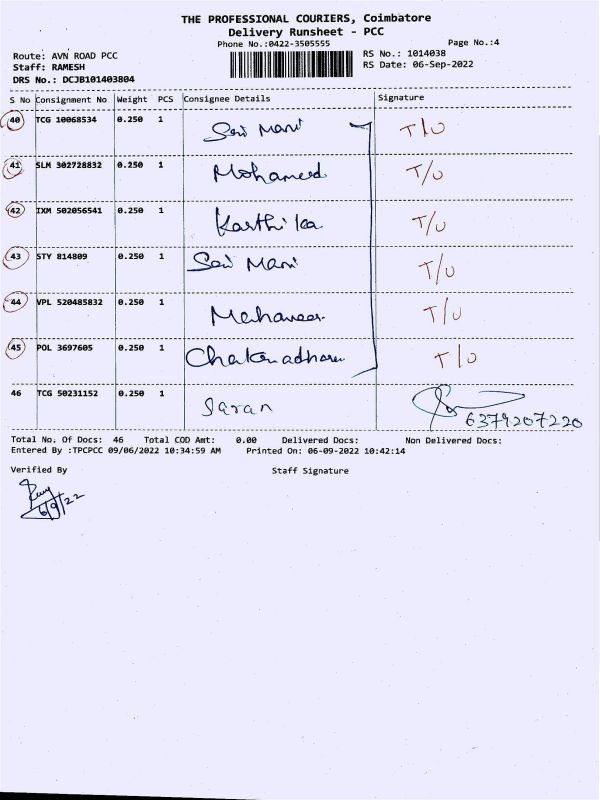 THE PROFESSIONAL COURIERS, Coimbatore
Delivery Runsheet - PCC
Phone No.:0422-3505555
Page No.:4
Route: AVN ROAD PCC
RS No.: 1014038
Staff: RAMESH
RS Date: 06-Sep-2022
DRS No.: DCJB101403804
S No Consignment No Weight PCS Consignee Details Signature
40 TCG 10068534 0.250 1 Sai Mani T/U
41 SLM 302728832 0.250 1 Mohameed T/U
42 IXM 502056541 0.250 1 Karthika T/U
43 STY 814809 0.250 1 Sai Mani T/U
44 VPL 520485832 0.250 1 Mahaveer T/U
45 POL 3697605 0.250 1 T/U
46 TCG 50231152 0.250 1 Saran 6379207220
Total No. Of Docs: 46 Total COD Amt: 0.00 Delivered Docs: Non Delivered Docs:
Entered By :TPCPCC 09/06/2022 10:34:59 AM Printed On: 06-09-2022 10:42:14
Verified By Staff Signature
6/9/22